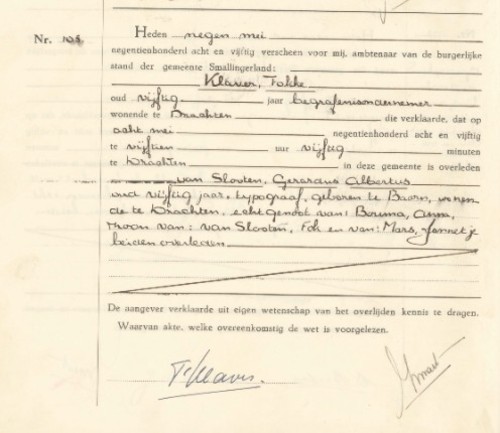 Nr. 105.
Heden negen mei
negentienhonderd acht en vijftig verscheen voor mij, ambtenaar van de burgerlijke
stand der gemeente Smallingerland:
Klaver, Fokke
oud vijftig jaar begrafenisondernemer
wonende te Drachten die verklaarde, dat op
acht mei negentienhonderd acht en vijftig
te vijftien uur vijftig minuten
te Drachten in deze gemeente is overleden
van Slooten, Gerardus Albertus
oud vijftig jaar, typograaf, geboren te Baarn, wonen
de te Drachten, echtgenoot van: Bouma, Anna,
zoon van: van Slooten, Fok en van: Mars, Jannetje
beiden overleden.
De aangever verklaarde uit eigen wetenschap van het overlijden kennis te dragen.
Waarvan akte, welke overeenkomstig de wet is voorgelezen.
F. Klaver.